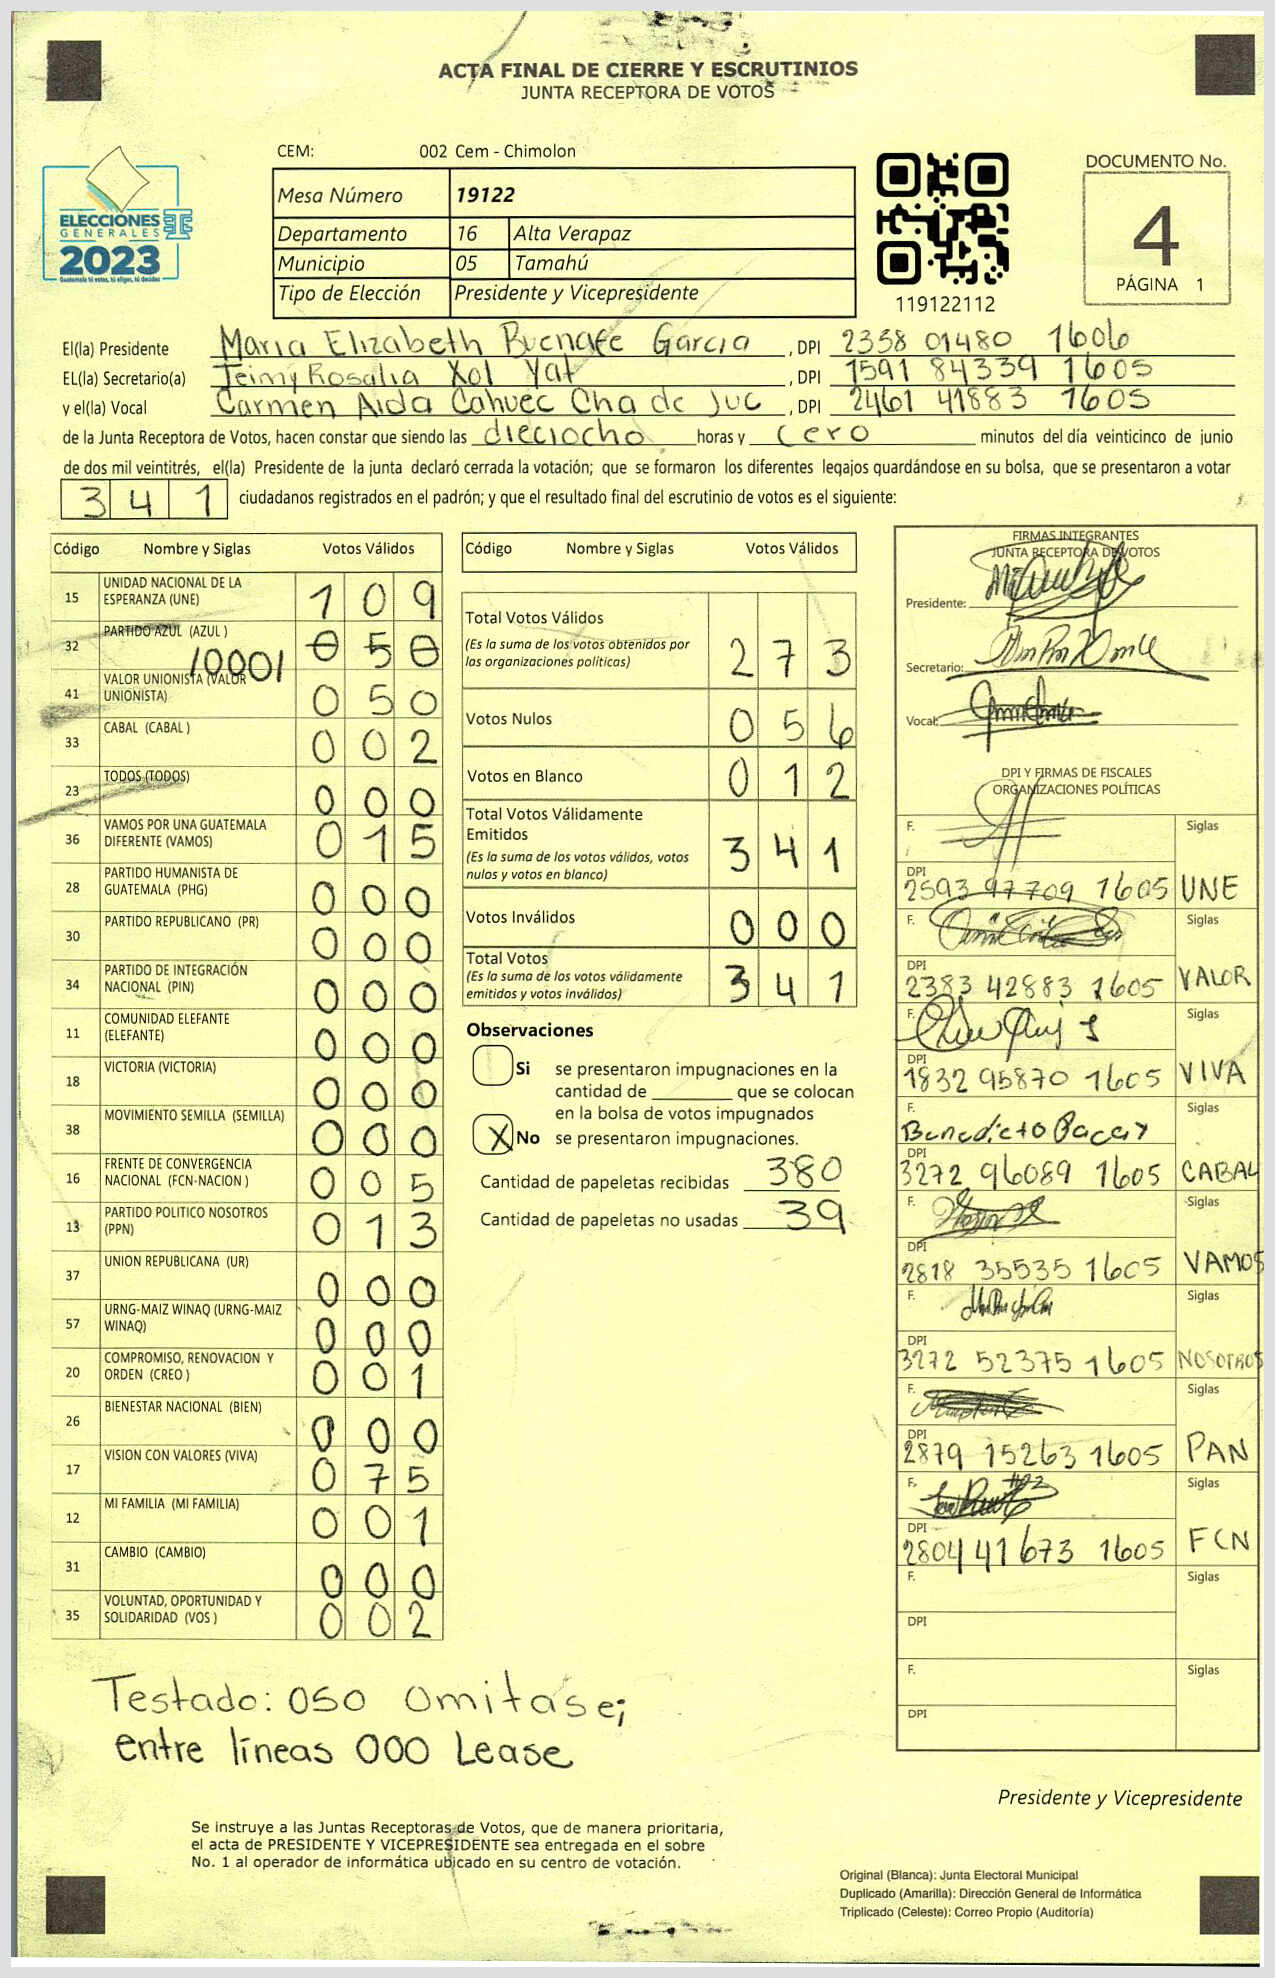 ACTA FINAL DE CIERRE Y ESCRUTINIOS
JUNTA RECEPTORA DE VOTOS
CEM: 002 Cem - Chimolon
DOCUMENTO No.
4
PÁGINA 1
ELECCIONES
GENERALES
2023
Mesa Número 19122
Departamento 16 Alta Verapaz
Municipio 05 Tamahú
Tipo de Elección Presidente y Vicepresidente
119122112
El(la) Presidente Maria Elizabeth Buenafe Garcia , DPI 2338 01480 1606
EL(la) Secretario(a) Jeimy Rosalia Xol Yat , DPI 1591 84339 1605
y el(la) Vocal Carmen Aida Cahuec Cha de Juc , DPI 2461 41883 1605
de la Junta Receptora de Votos, hacen constar que siendo las dieciocho horas y cero minutos del día veinticinco de junio
de dos mil veintitrés, el(la) Presidente de la junta declaró cerrada la votación; que se formaron los diferentes legajos guardándose en su bolsa, que se presentaron a votar
341 ciudadanos registrados en el padrón; y que el resultado final del escrutinio de votos es el siguiente:
Código Nombre y Siglas Votos Válidos
15 UNIDAD NACIONAL DE LA ESPERANZA (UNE) 109
32 PARTIDO AZUL (AZUL ) 050 /000/
41 VALOR UNIONISTA (VALOR UNIONISTA) 050
33 CABAL (CABAL ) 002
23 TODOS (TODOS) 000
36 VAMOS POR UNA GUATEMALA DIFERENTE (VAMOS) 015
28 PARTIDO HUMANISTA DE GUATEMALA (PHG) 000
30 PARTIDO REPUBLICANO (PR) 000
34 PARTIDO DE INTEGRACIÓN NACIONAL (PIN) 000
11 COMUNIDAD ELEFANTE (ELEFANTE) 000
18 VICTORIA (VICTORIA) 000
38 MOVIMIENTO SEMILLA (SEMILLA) 000
16 FRENTE DE CONVERGENCIA NACIONAL (FCN-NACION ) 005
13 PARTIDO POLITICO NOSOTROS (PPN) 013
37 UNION REPUBLICANA (UR) 000
57 URNG-MAIZ WINAQ (URNG-MAIZ WINAQ) 000
20 COMPROMISO, RENOVACION Y ORDEN (CREO ) 001
26 BIENESTAR NACIONAL (BIEN) 000
17 VISION CON VALORES (VIVA) 075
12 MI FAMILIA (MI FAMILIA) 001
31 CAMBIO (CAMBIO) 000
35 VOLUNTAD, OPORTUNIDAD Y SOLIDARIDAD (VOS ) 002
Código Nombre y Siglas Votos Válidos
Total Votos Válidos 273
(Es la suma de los votos obtenidos por
las organizaciones políticas)
Votos Nulos 056
Votos en Blanco 012
Total Votos Válidamente
Emitidos 341
(Es la suma de los votos válidos, votos
nulos y votos en blanco)
Votos Inválidos 000
Total Votos 341
(Es la suma de los votos válidamente
emitidos y votos inválidos)
Observaciones
Si se presentaron impugnaciones en la
cantidad de ________ que se colocan
en la bolsa de votos impugnados
X No se presentaron impugnaciones.
Cantidad de papeletas recibidas 380
Cantidad de papeletas no usadas 39
FIRMAS INTEGRANTES
JUNTA RECEPTORA DE VOTOS
Presidente:
Secretario:
Vocal:
DPI Y FIRMAS DE FISCALES
ORGANIZACIONES POLÍTICAS
F. Siglas
DPI 2593 97709 1605 UNE
F. Siglas
DPI 2383 42883 1605 VALOR
F. Siglas
DPI 1832 95870 1605 VIVA
F. Benedicto Siglas
DPI 3272 96089 1605 CABAL
F. Siglas
DPI 2818 35535 1605 VAMOS
F. Siglas
DPI 3272 52375 1605 NOSOTROS
F. Siglas
DPI 2879 15263 1605 PAN
F. Siglas
DPI 2804 41673 1605 FCN
F. Siglas
DPI
F. Siglas
DPI
Testado: 050 Omitase;
entre líneas 000 Lease
Presidente y Vicepresidente
Se instruye a las Juntas Receptoras de Votos, que de manera prioritaria,
el acta de PRESIDENTE Y VICEPRESIDENTE sea entregada en el sobre
No. 1 al operador de informática ubicado en su centro de votación.
Original (Blanca): Junta Electoral Municipal
Duplicado (Amarilla): Dirección General de Informática
Triplicado (Celeste): Correo Propio (Auditoría)